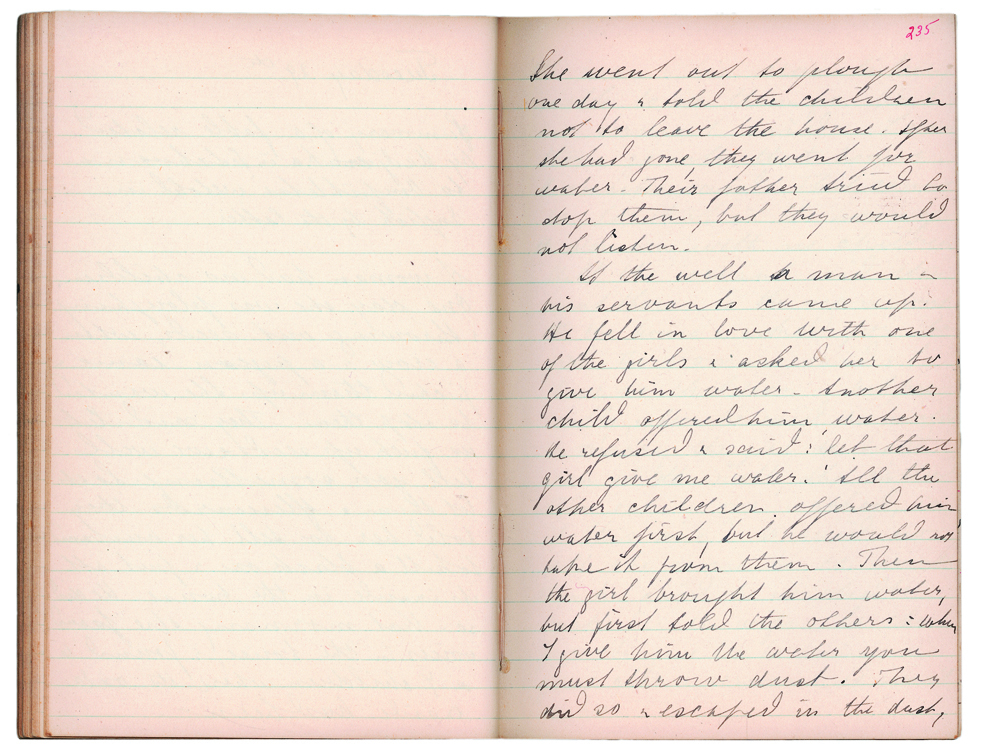 235
She went out to plough
one day & told the children
not to leave the house. After
she had gone, they went for
water. Their father tried to
stop them, but they would
not listen.
At the well a man &
his servants came up.
He fell in love with one
of the girls & asked her to
give him water. Another
child offered him water.
He refused & said: 'let that
girl give me water.' All the
other children offered him
water first, but he would not
take it from them. Then
the girl brought him water,
but first told the others: when
I give him the water you
must throw dust. They
did so & escaped in the dust,